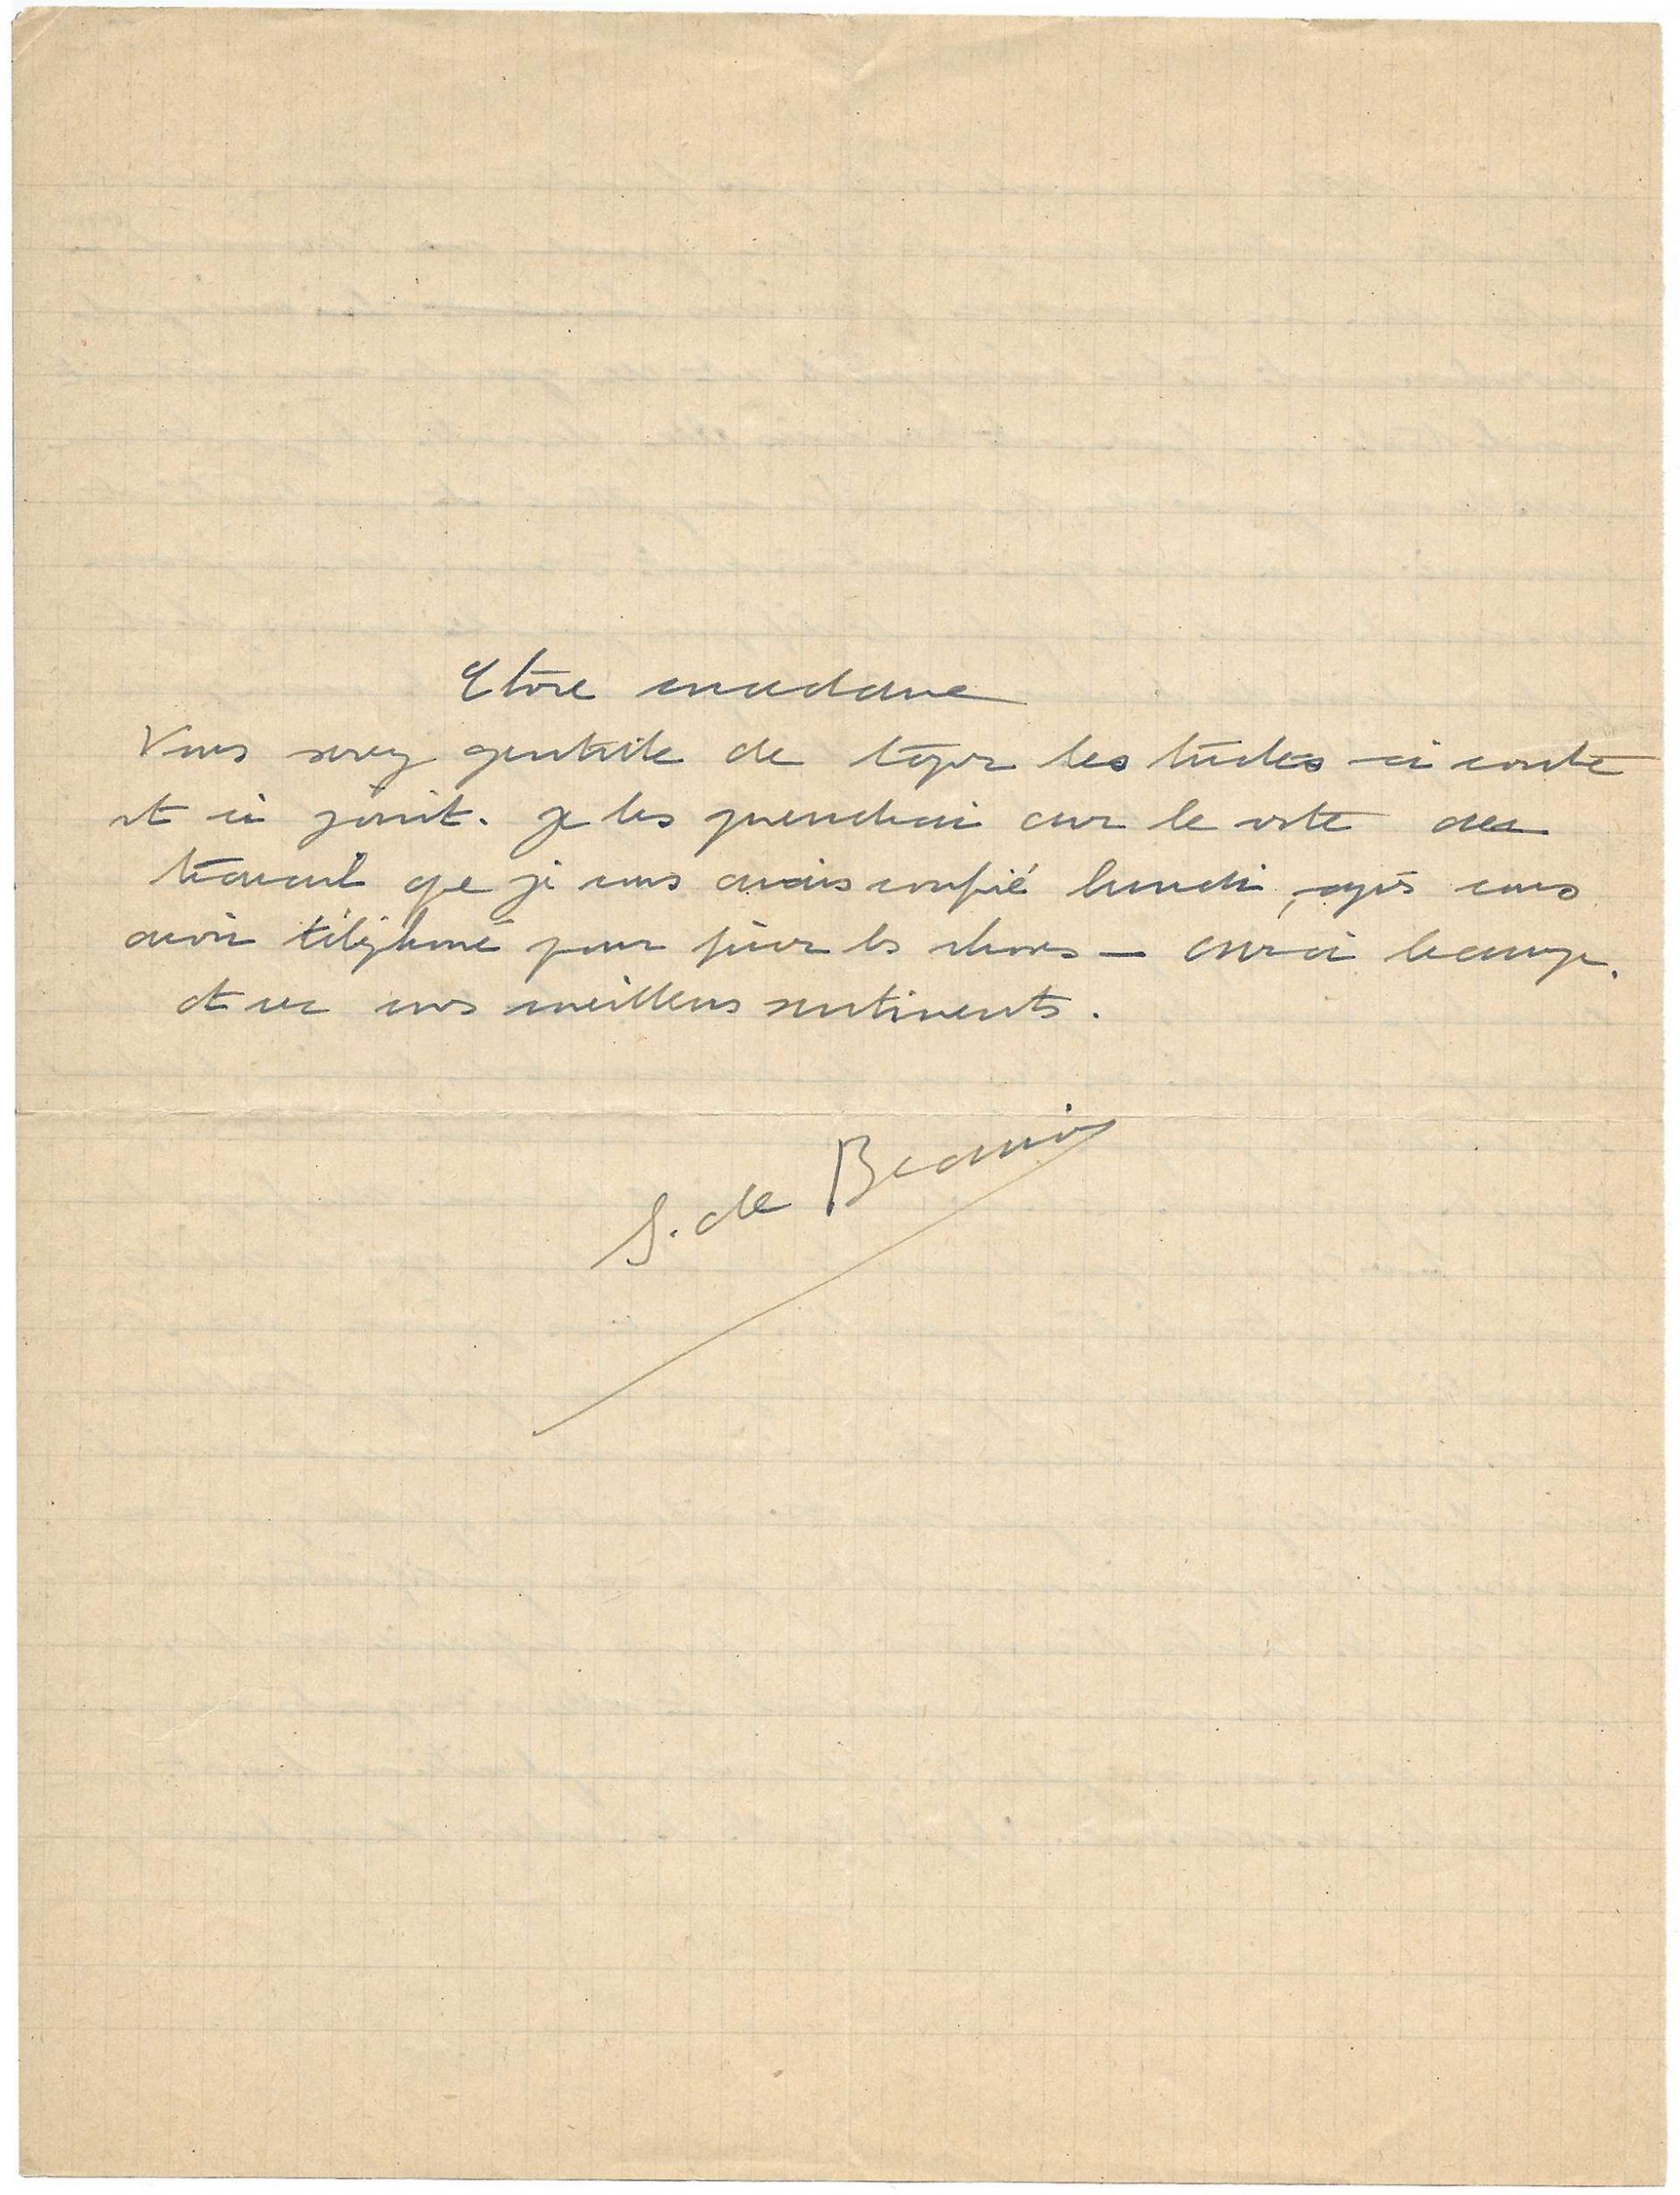 Chère madame
Vous serez gentille de taper les textes ci contre
et ci joint. Je les prendrai avec le reste du
travail que je vous avais confié lundi, après vous
avoir téléphoné pour fixer les choses — merci beaucoup.
et avec mes meilleurs sentiments.
S. de Beauvoir